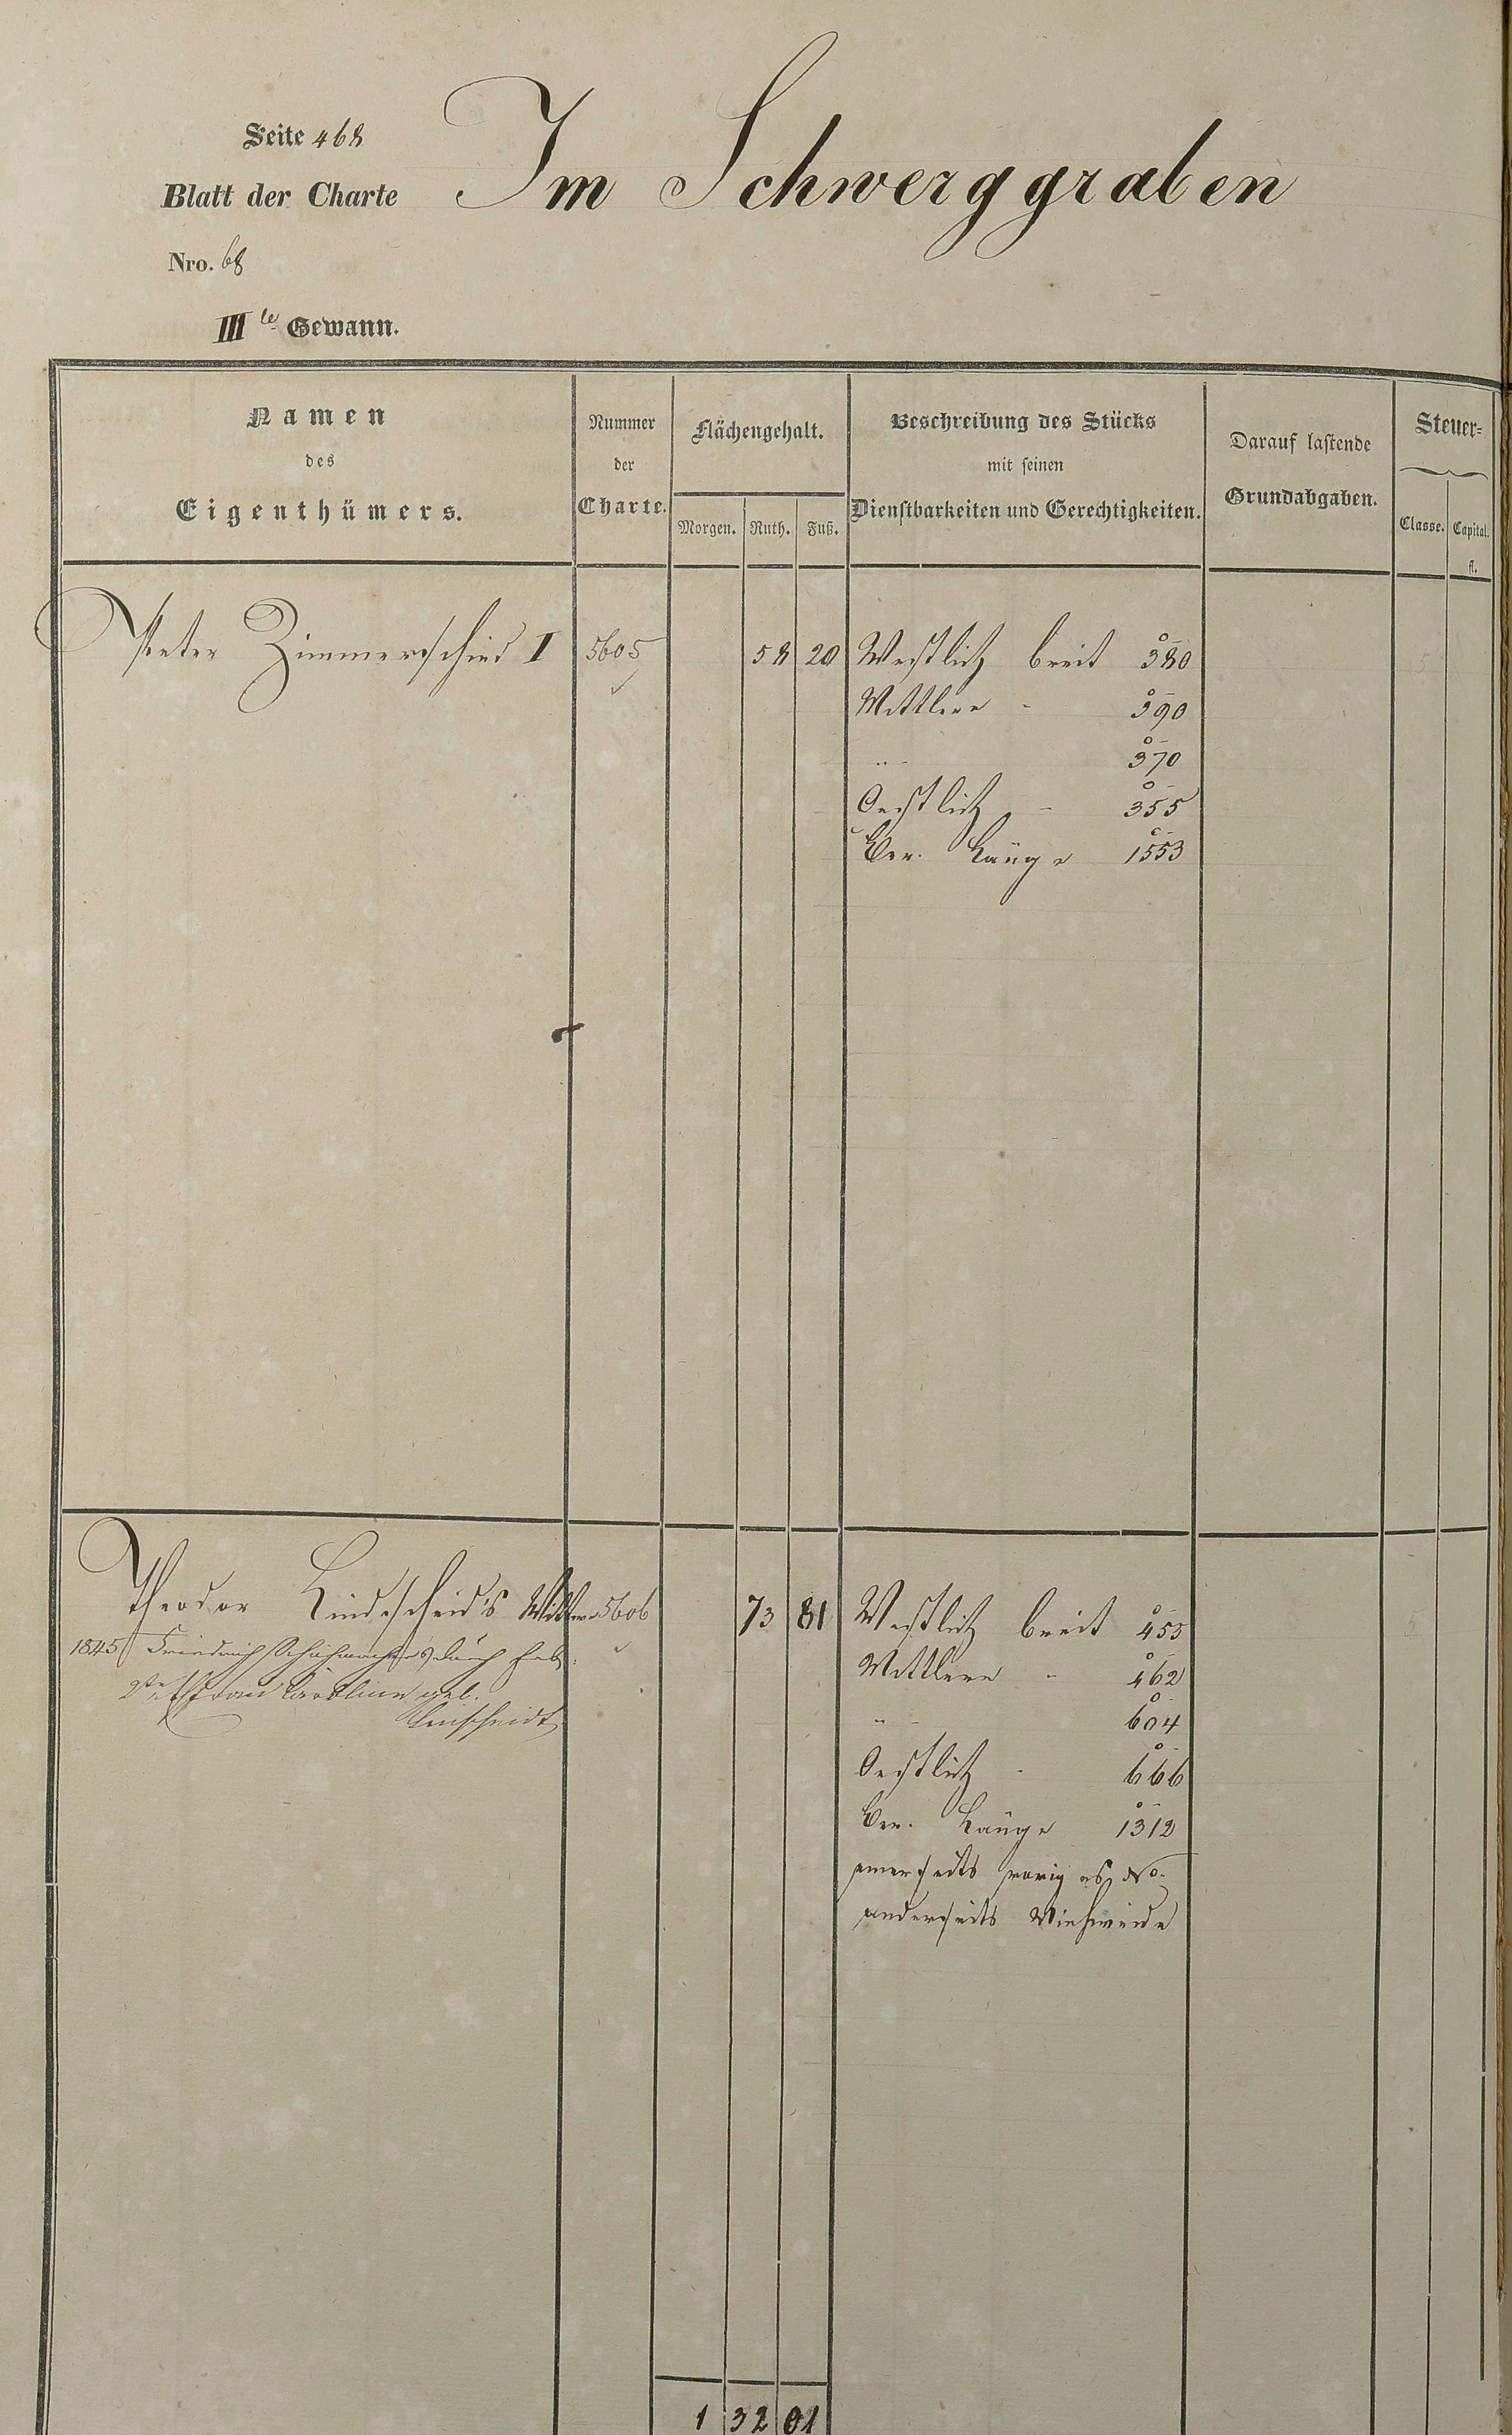 Seite 468
Im Schwerggraben
Blatt der Charte
Nro. 68
III te Gewann.
Namen
des
Eigenthümers.
Nummer
der
Charte.
Flächengehalt.
Morgen. Ruth. Fuß.
Beschreibung des Stücks
mit seinen
Dienstbarkeiten und Gerechtigkeiten.
Darauf lastende
Grundabgaben.
Steuer-
Classe. Capital.
fl.
Peter Zimmerschied I 5605 58 20 Westlich breit 380 5
Mittlere - 390
" - 370
Oestlich - 355
Ver. Länge 1553
Theodor Lindscheid's Wittwe 5606 73 81 Westlich breit 455 5
1845 Friedrich Schuhmacher durch
Mittlere - 462
Frau Caroline geb.
Linscheidt
" - 604
Oestlich - 666
Ver. Länge 1312
einerseits vorig No.
anderseits Viehweide
1 32 01